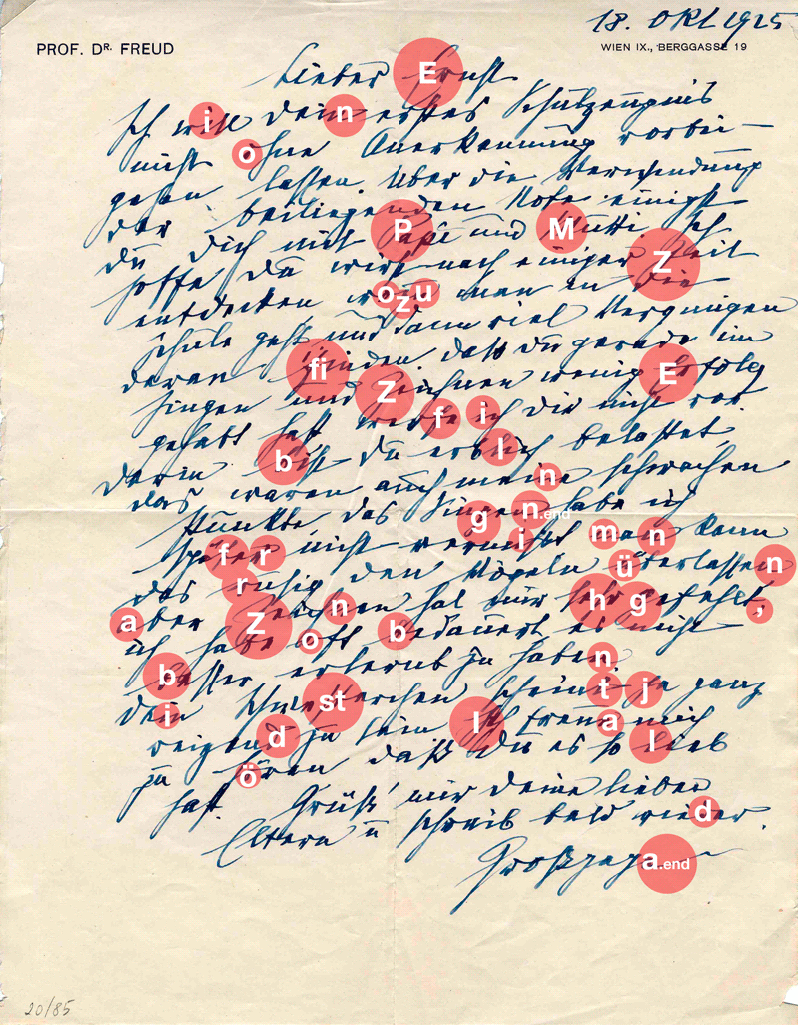 18. Okt 1925
PROF. DR. FREUD
WIEN IX., BERGGASSE 19
Lieber Ernst
Ich will dein erstes Schulzeugnis
nicht ohne Anerkennung vorbei-
gehen lassen. Über die Verwendung
der beiliegenden Note einigst
du dich mit Papa und Mutti. Ich
hoffe du wirst nach einiger Zeit
entdecken wozu man in die
Schule geht und dann viel Vergnügen
daran finden. Daß du gerade im
Singen und Zeichnen wenig Erfolg
gehabt hast werfe ich dir nicht vor.
Darin bist du erblich belastet,
das waren auch meine schwachen
Punkte, das Singen habe ich
später nicht vermißt man kann
das ruhig den Vögeln überlassen
aber Zeichnen hat mir sehr gefehlt,
ich habe oft bedauert es nicht
besser erlernt zu haben
Dein Schwesterchen scheint ja ganz
reizend zu sein Ich freue mich
zu hören daß du es so lieb
hast. Grüß mir deine lieben
Eltern u schreib bald wieder.
Großpapa
20/85